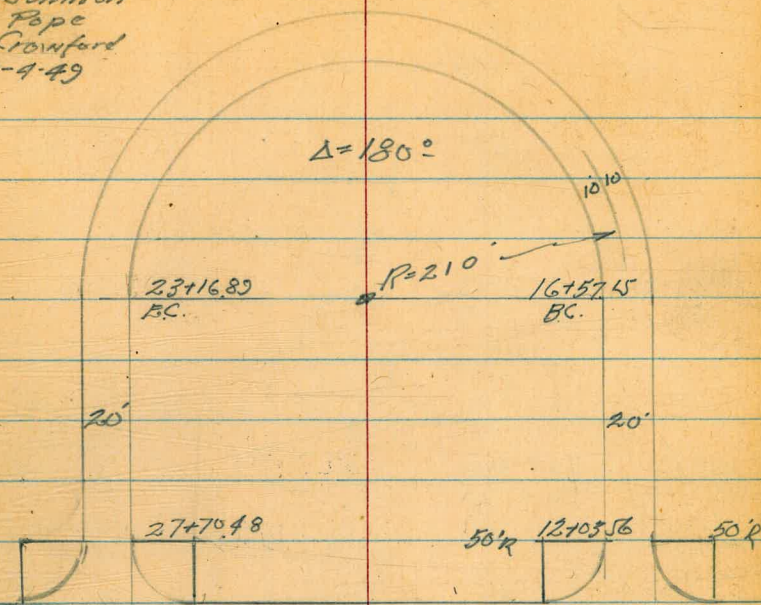 Pope
Crawford
-4-49
Δ=180°
10 10
R=210'
23+16.89
E.C.
16+57.15
B.C.
20'
20'
27+70.48
50'R
12+03.56
50'R